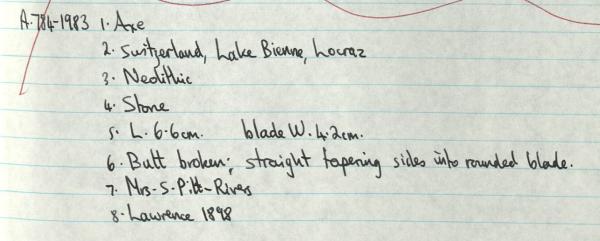 A.784-1983 1. Axe
2. Switzerland, Lake Bienne, Locraz
3. Neolithic
4. Stone
5. L. 6.6cm. blade W. 4.2cm.
6. Butt broken; straight tapering sides into rounded blade.
7. Mrs-S-Pitt-Rivers
8. Lawrence 1898